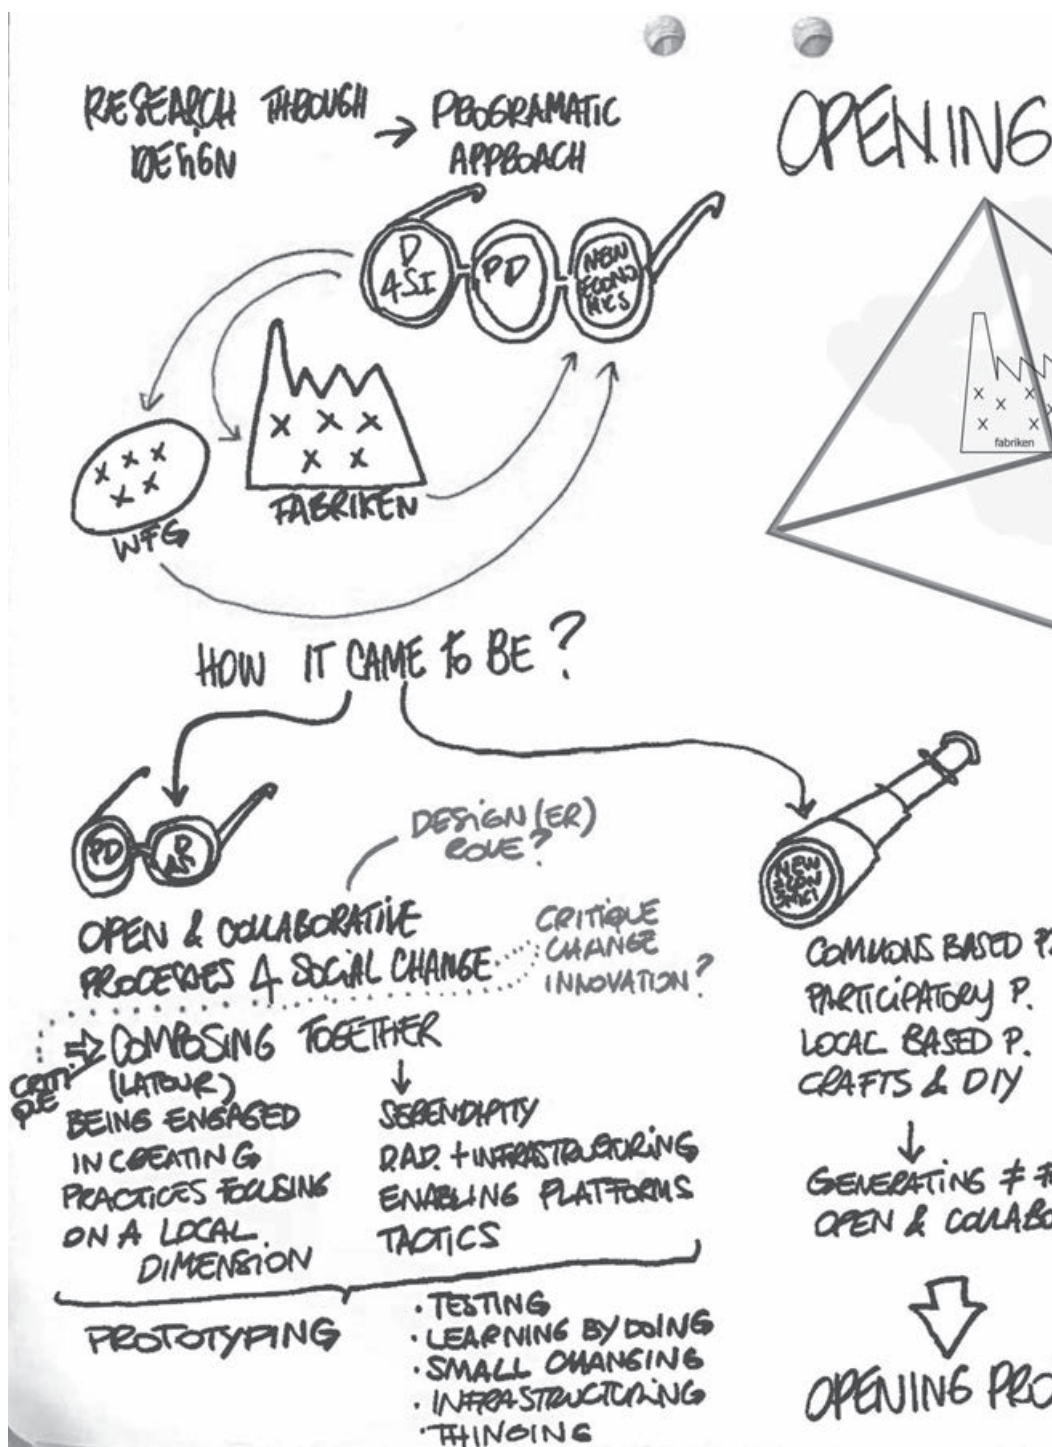 RESEARCH THROUGH
DESIGN
→ PROGRAMATIC
APPROACH
OPENING
D
4SI
PD
NEW
ECONO
MICS
FABRIKEN
WFG
fabriken
HOW IT CAME TO BE?
PD
D
4SI
DESIGN(ER)
ROLE?
NEW
ECON
OPEN & COLLABORATIVE
PROCESSES 4 SOCIAL CHANGE
CRITIQUE
CHANGE
INNOVATION?
⇒ COMPOSING TOGETHER
(LATOUR)
CRITI
QUE
BEING ENGAGED
IN CREATING
PRACTICES FOCUSING
ON A LOCAL
DIMENSION
SERENDIPITY
D.A.D. + INFRASTRUCTURING
ENABLING PLATFORMS
TACTICS
PROTOTYPING
· TESTING
· LEARNING BY DOING
· SMALL CHANGING
· INFRASTRUCTURING
· THINGING
COMMONS BASED P.
PARTICIPATORY P.
LOCAL BASED P.
CRAFTS & DIY
GENERATING ≠
OPEN & COLLABO
OPENING PRO